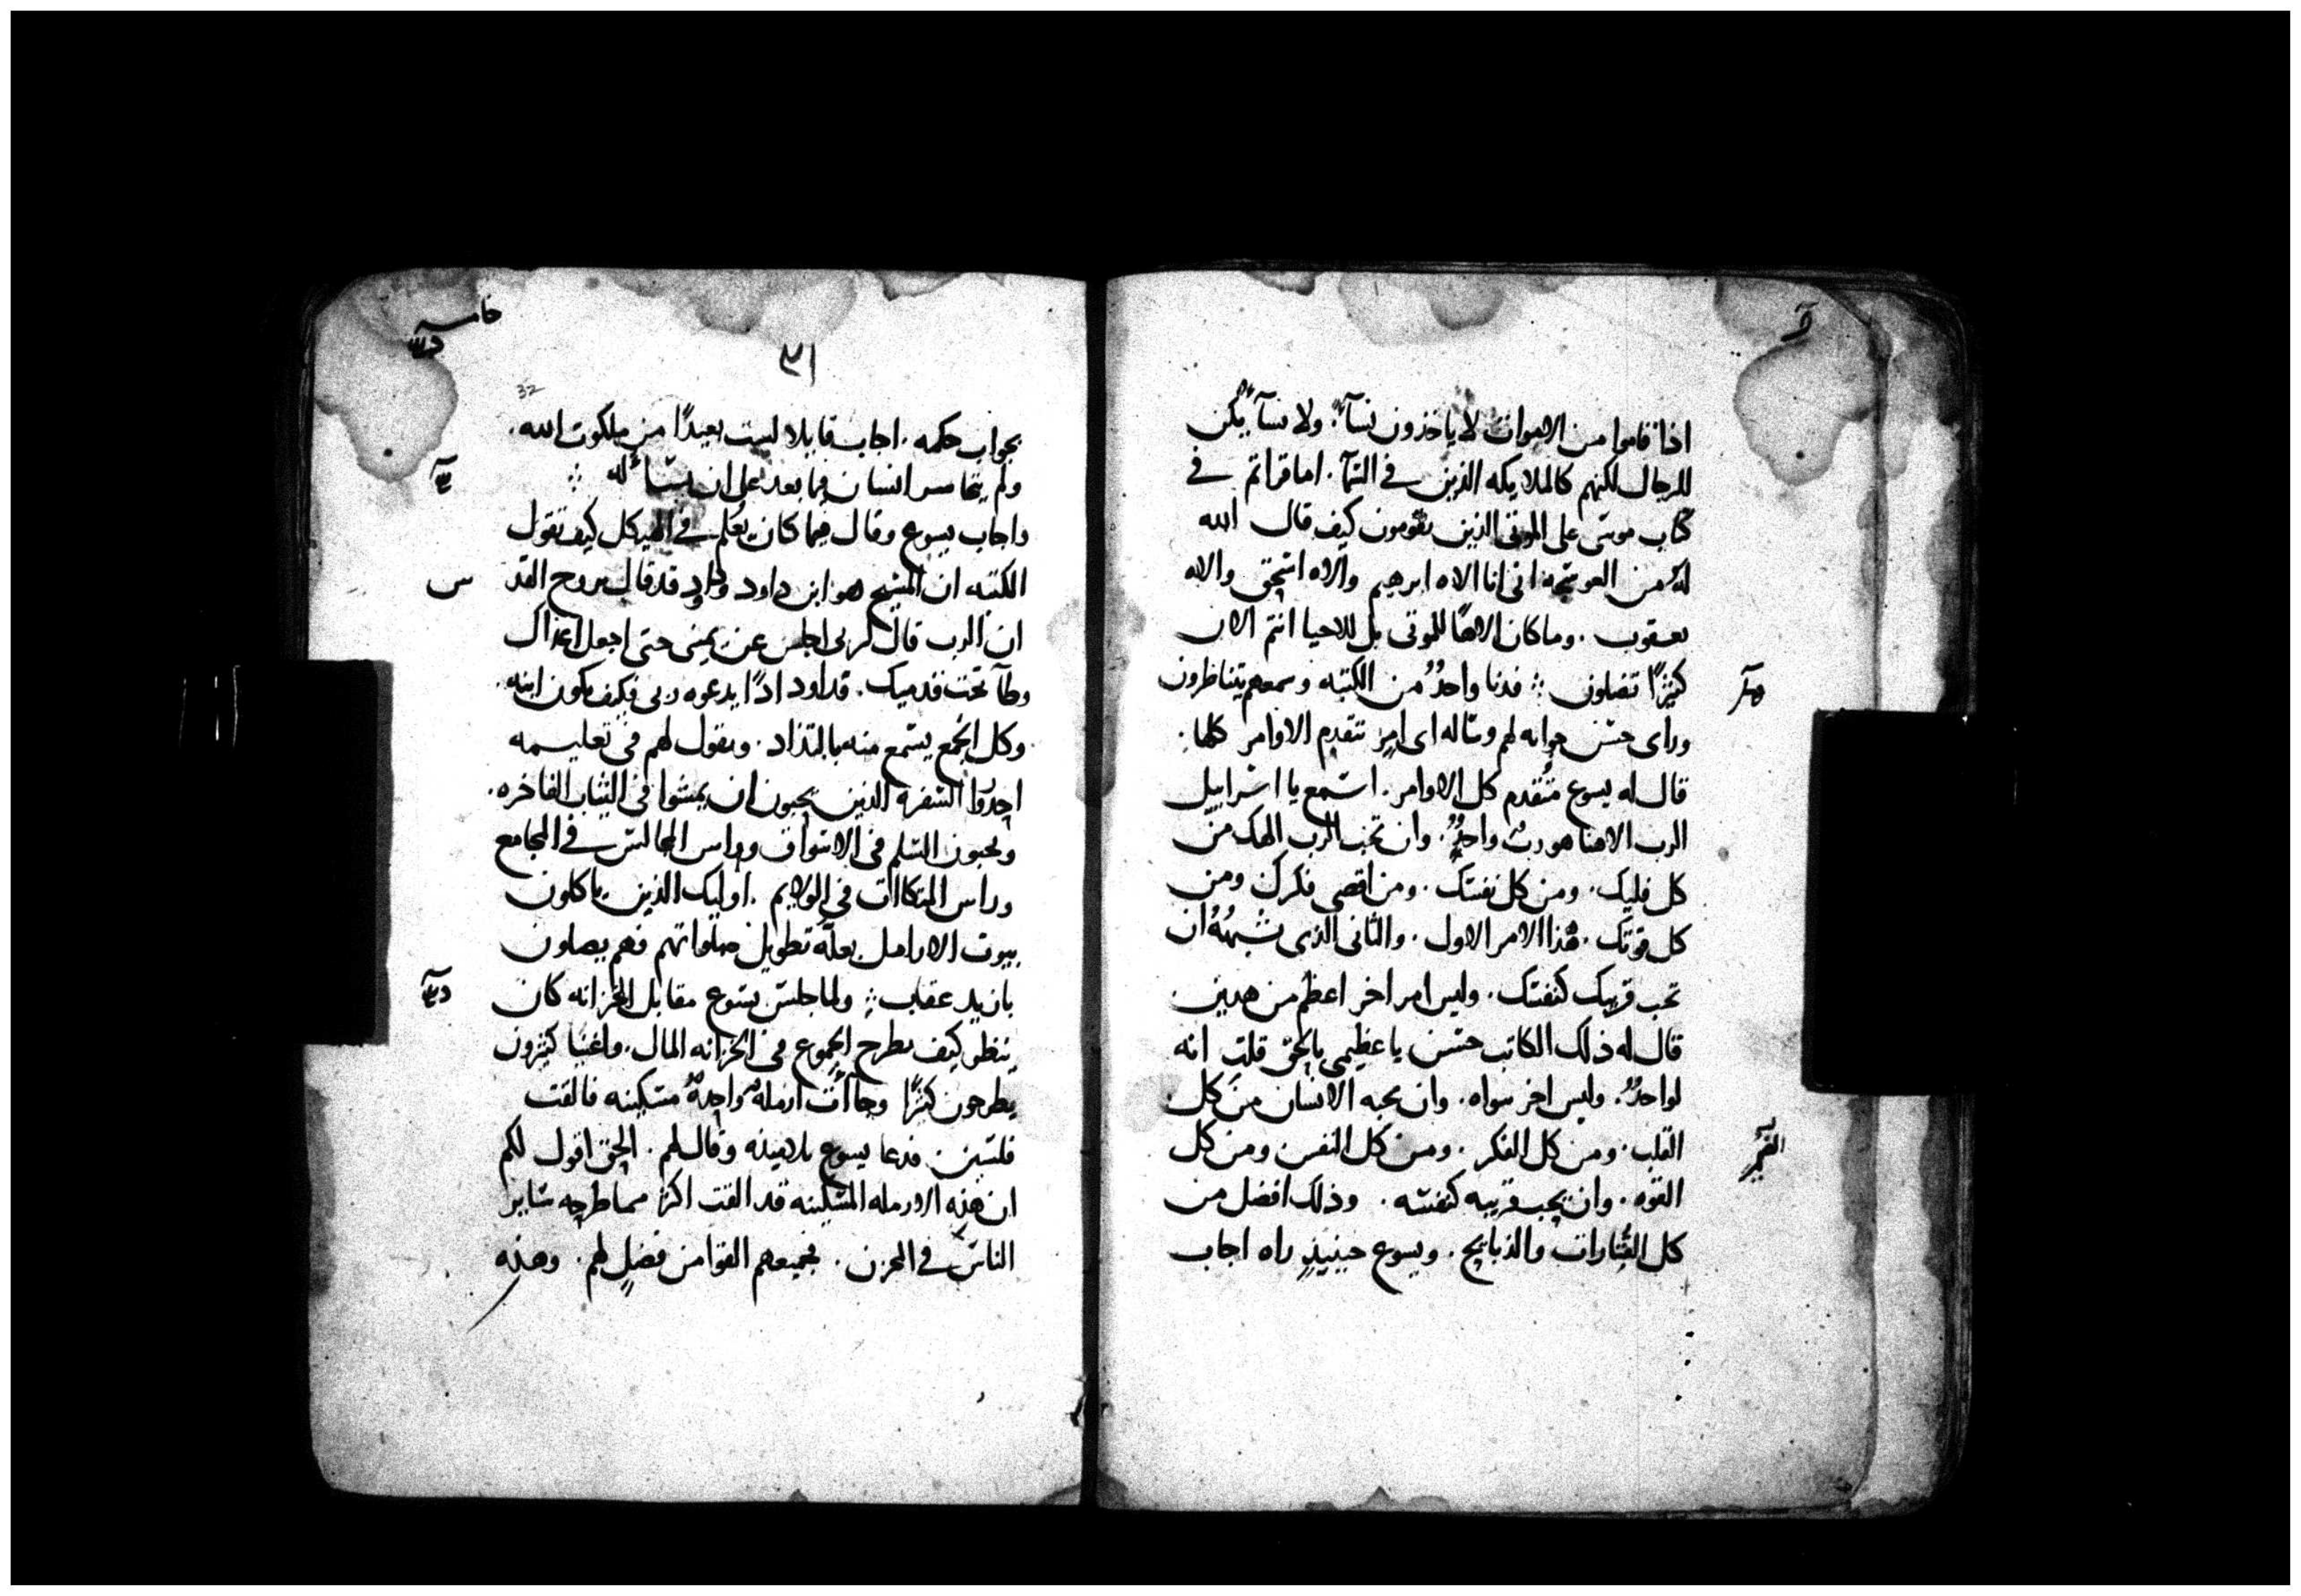 اذا قاموا من الاموات لا ياخذون نسآءً ولا نسآءً يكن
للرجال لكنهم كالملايكه الذين في السمآ. اما قراتم في
كتاب موسى على الموتى الذين يقومون كيف قال الله
له من العوسجه اني انا الاه ابرهيم والاه اسحق والاه
يعقوب. وما كان الاهًا للموتى بل للاحيا انتم الان
كثيرًا تضلون ؞ فدنا واحدٌ من الكتبه وسمعهم يتناظرون
وراى حسن جوابه لهم وساله اى امرٍ تتقدم الاوامر كلها.
قال له يسوع متقدم كل الاوامر. استمع يا اسراييل
الرب الاهنا هو ربٌ واحدٌ. وان تحب الرب الهك من
كل قلبك. ومن كل نفسك. ومن اقصى فكرك ومن
كل قوتك. هذا الامر الاول. والثاني الذى يشبهُهُ ان
تحب قريبك كنفسك. وليس امر اخر اعظم من هذين
قال له ذلك الكاتب حسن يا عظيمي بالحق قلت انه
لواحدٌ. وليس اخر سواه. وان يحبه الانسان من كل
القلب. ومن كل الفكر. ومن كل النفس ومن كل
القوه. وان يحب قريبه كنفسه. وذلك افضل من
كل القتارات والذبايح. ويسوع حينيذٍ راه اجاب
٣١
32
بجواب حكمه. اجاب قايلا لست بعيدًا من ملكوت الله.
ولم يتجاسر انسان فيما بعد على ان يسائله ؞
واجاب يسوع وقال فيما كان يُعلم في الهيكل كيف تقول
الكتبه ان المسيح هو ابن داود وداود قد قال بروح القد
س
ان الرب قال لربى اجلس عن يمينى حتى اجعل اعداك
وطآ تحت قدميك. فداود اذًا يدعوه ربى فكيف يكون ابنه.
وكل الجمع يسمع منه بالتذاذ. ويقول لهم في تعليمه
احذروا السفره الذين يحبون ان يمشوا في الثياب الفاخره.
ويحبون السلم في الاسواق وراس المجالس في المجامع
وراس المتكاات في الولايم. اوليك الذين ياكلون
بيوت الارامل بعلّة تطويل صلواتهم فهم يصلون
بازيد عقاب ؞ ولما جلس يسوع مقابل الخزانه كان
ينظر كيف يطرح الجموع في الخزانه المال. واغنيا كثيرون
يطرحون كثيرًا وجاأت ارملةٌ واحدةٌ مسكينه فالقت
فلسين. فدعا يسوع تلاميذه وقال لهم. الحق اقول لكم
ان هذه الارمله المسكينه قد القت اكثر مما طرحه ساير
الناس في المخزن. فجميعهم القوا من فضلٍ لهم. وهذه